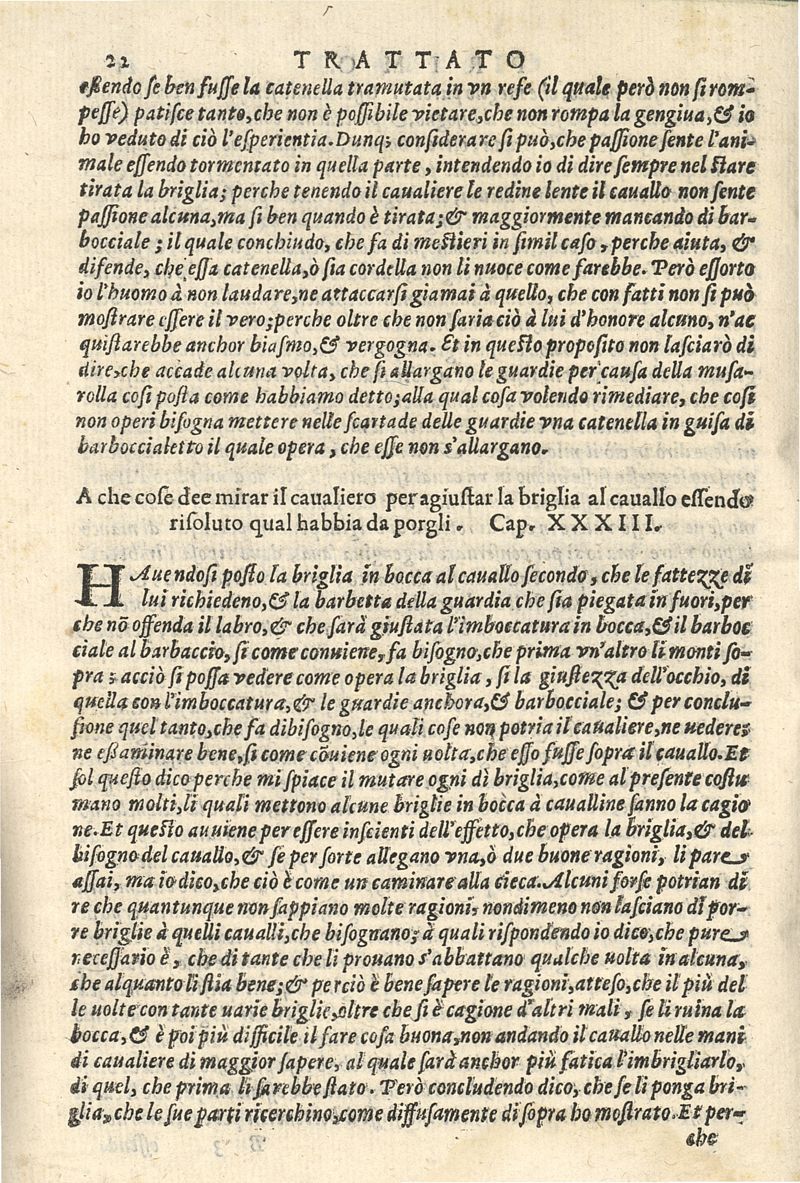 22 TRATTATO
eßendo se ben fusse la catenella tramutata in vn refe (il quale però non si rom-
pesse) patisce tanto, che non è possibile vietare, che non rompa la gengiua, & io
ho veduto di ciò l'esperientia. Dunq; considerare si può, che passione sente l'ani-
male essendo tormentato in quella parte, intendendo io di dire sempre nel stare
tirata la briglia; perche tenendo il caualiere le redine lente il cauallo non sente
passione alcuna, ma si ben quando è tirata; & maggiormente mancando di bar-
bocciale; il quale conchiudo, che fa di mestieri in simil caso, perche aiuta, &
difende, che essa catenella, ò sia cordella non li nuoce come farebbe. Però essorto
io l'huomo à non laudare, ne attaccarsi giamai à quello, che con fatti non si può
mostrare essere il vero; perche oltre che non saria ciò à lui d'honore alcuno, n'ac
quistarebbe anchor biasmo, & vergogna. Et in questo proposito non lasciarò di
dire, che accade alcuna volta, che si allargano le guardie per causa della musa-
rolla così posta come habbiamo detto; alla qual cosa volendo rimediare, che così
non operi bisogna mettere nelle scartade delle guardie vna catenella in guisa di
barboccialetto il quale opera, che esse non s'allargano.
A che cose dee mirar il caualiero per agiustar la briglia al cauallo essendo
risoluto qual habbia da porgli. Cap. XXXIII.
HAuendosi posto la briglia in bocca al cauallo secondo, che le fattezze di
lui richiedeno, & la barbetta della guardia che sia piegata in fuori, per
che nõ offenda il labro, & che sarà giustata l'imboccatura in bocca, & il barboc
ciale al barbaccio, si come conuiene, fa bisogno, che prima vn'altro li monti so-
pra; acciò si possa vedere come opera la briglia, si la giustezza dell'occhio, di
quella con l'imboccatura, & le guardie anchora, & barbocciale; & per conclu-
sione quel tanto, che fa dibisogno, le quali cose non potria il caualiere, ne uedere;
ne eßaminare bene, si come cõuiene ogni uolta, che esso fusse sopra il cauallo. Et
sol questo dico perche mi spiace il mutare ogni dì briglia, come al presente costu
mano molti, li quali mettono alcune briglie in bocca à caualli ne sanno la cagio
ne. Et questo auuiene per essere inscienti dell'effetto, che opera la briglia, & del
bisogno del cauallo, & se per sorte allegano vna, ò due buone ragioni, li pare
assai, ma io dico, che ciò è come un caminare alla cieca. Alcuni forse potrian di
re che quantunque non sappiano molte ragioni, nondimeno non lasciano di por-
re briglie à quelli caualli, che bisognano; à quali rispondendo io dico, che pure
necessario è, che di tante che li prouano s'abbattano qualche uolta in alcuna,
che alquanto li stia bene; & perciò è bene sapere le ragioni, atteso, che il più del
le uolte con tante uarie briglie, oltre che si è cagione d'altri mali, se li ruina la
bocca, & è poi più difficile il fare cosa buona, non andando il cauallo nelle mani
di caualiere di maggior sapere, al quale sarà anchor più fatica l'imbrigliarlo,
di quel, che prima li sarebbe stato. Però concludendo dico, che se li ponga bri-
glia, che le sue parti ricerchino, come diffusamente di sopra ho mostrato. Et per-
che